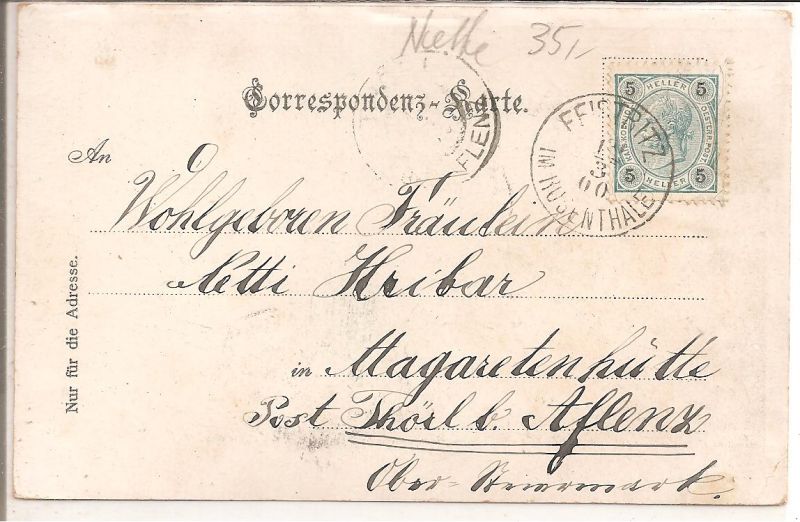 Nette 35,-
Correspondenz-Karte.
5 HELLER 5
KAIS. KÖNIGL. OESTERR. POST
5 HELLER 5
FEISTRITZ
IM ROSENTHALE
00
AFLENZ
An
Wohlgeboren Fräulein
Netti Hribar
in Magaretenhütte
Post Thörl b. Aflenz
Ober-Steiermark.
Nur für die Adresse.